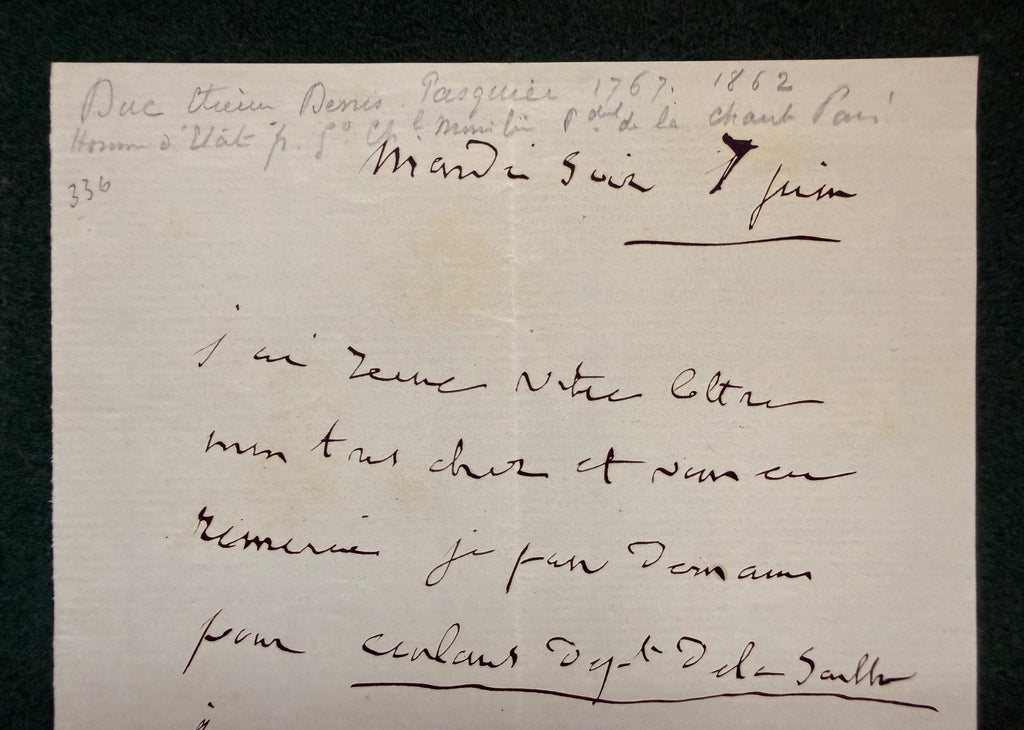 Duc Etienne Denis Pasquier 1767. 1862
Homme d'Etât fr. Gd Ch. Pdt de la chamb Pairs
336
Mardi soir 7 juin
j'ai reçue votre lettre
mon tres cher et vous en
remercie je pars Demain
pour coulans Dept De la Sarthe